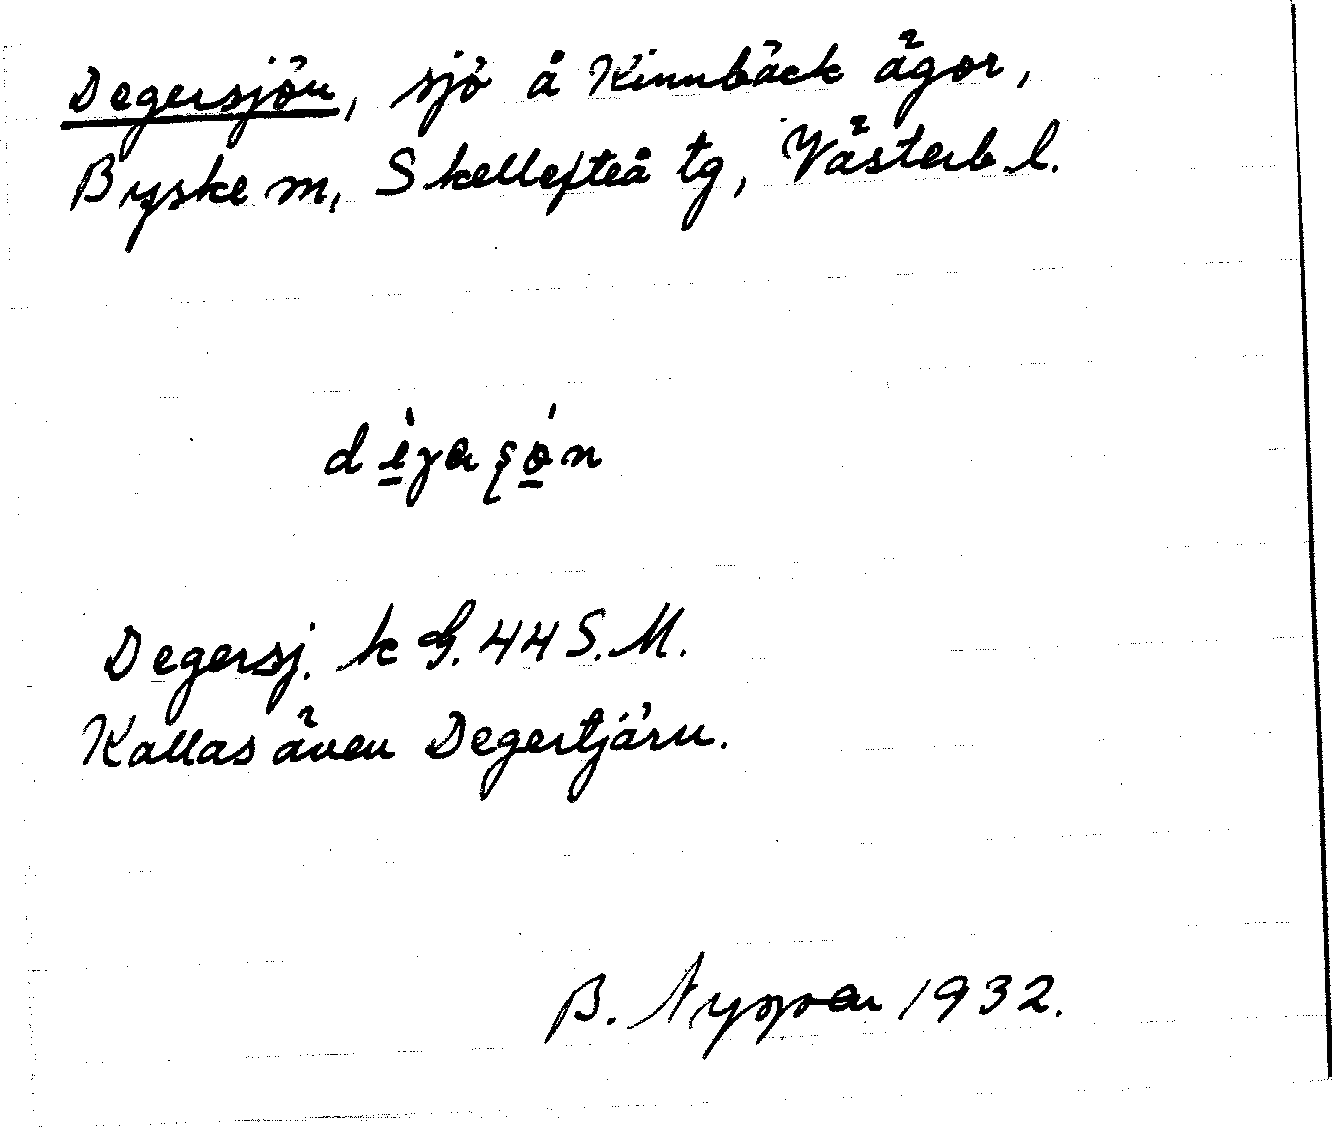 Degersjön, sjö å Kinnbäck ägor,
Byske sn, Skellefteå tg, Västerb. l.
Degersj. k G. 44 S.M.
Kallas även Degertjärn.
B. 1932.